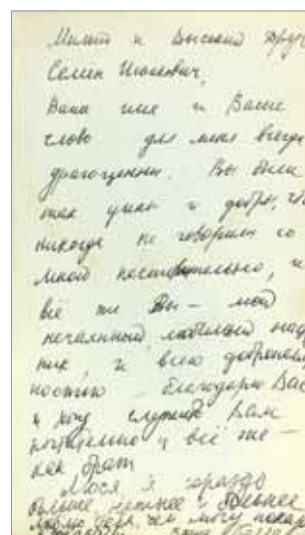 Милый и Высокий Друг
Семен Израилевич,
Ваше имя и Ваше
слово для меня всегда
драгоценны. Вы были
так умны и добры, что
никогда не говорили со
мной наставительно, и
всё же Вы – мой
нечаянный, любимый настав
ник, и всею доброжелатель
ностью – благодарю Вас
и хочу служить Вам
почтительно и всё же –
как брат
Люся, я гораздо
больше, нежнее и больнее
люблю тебя, чем могу показать